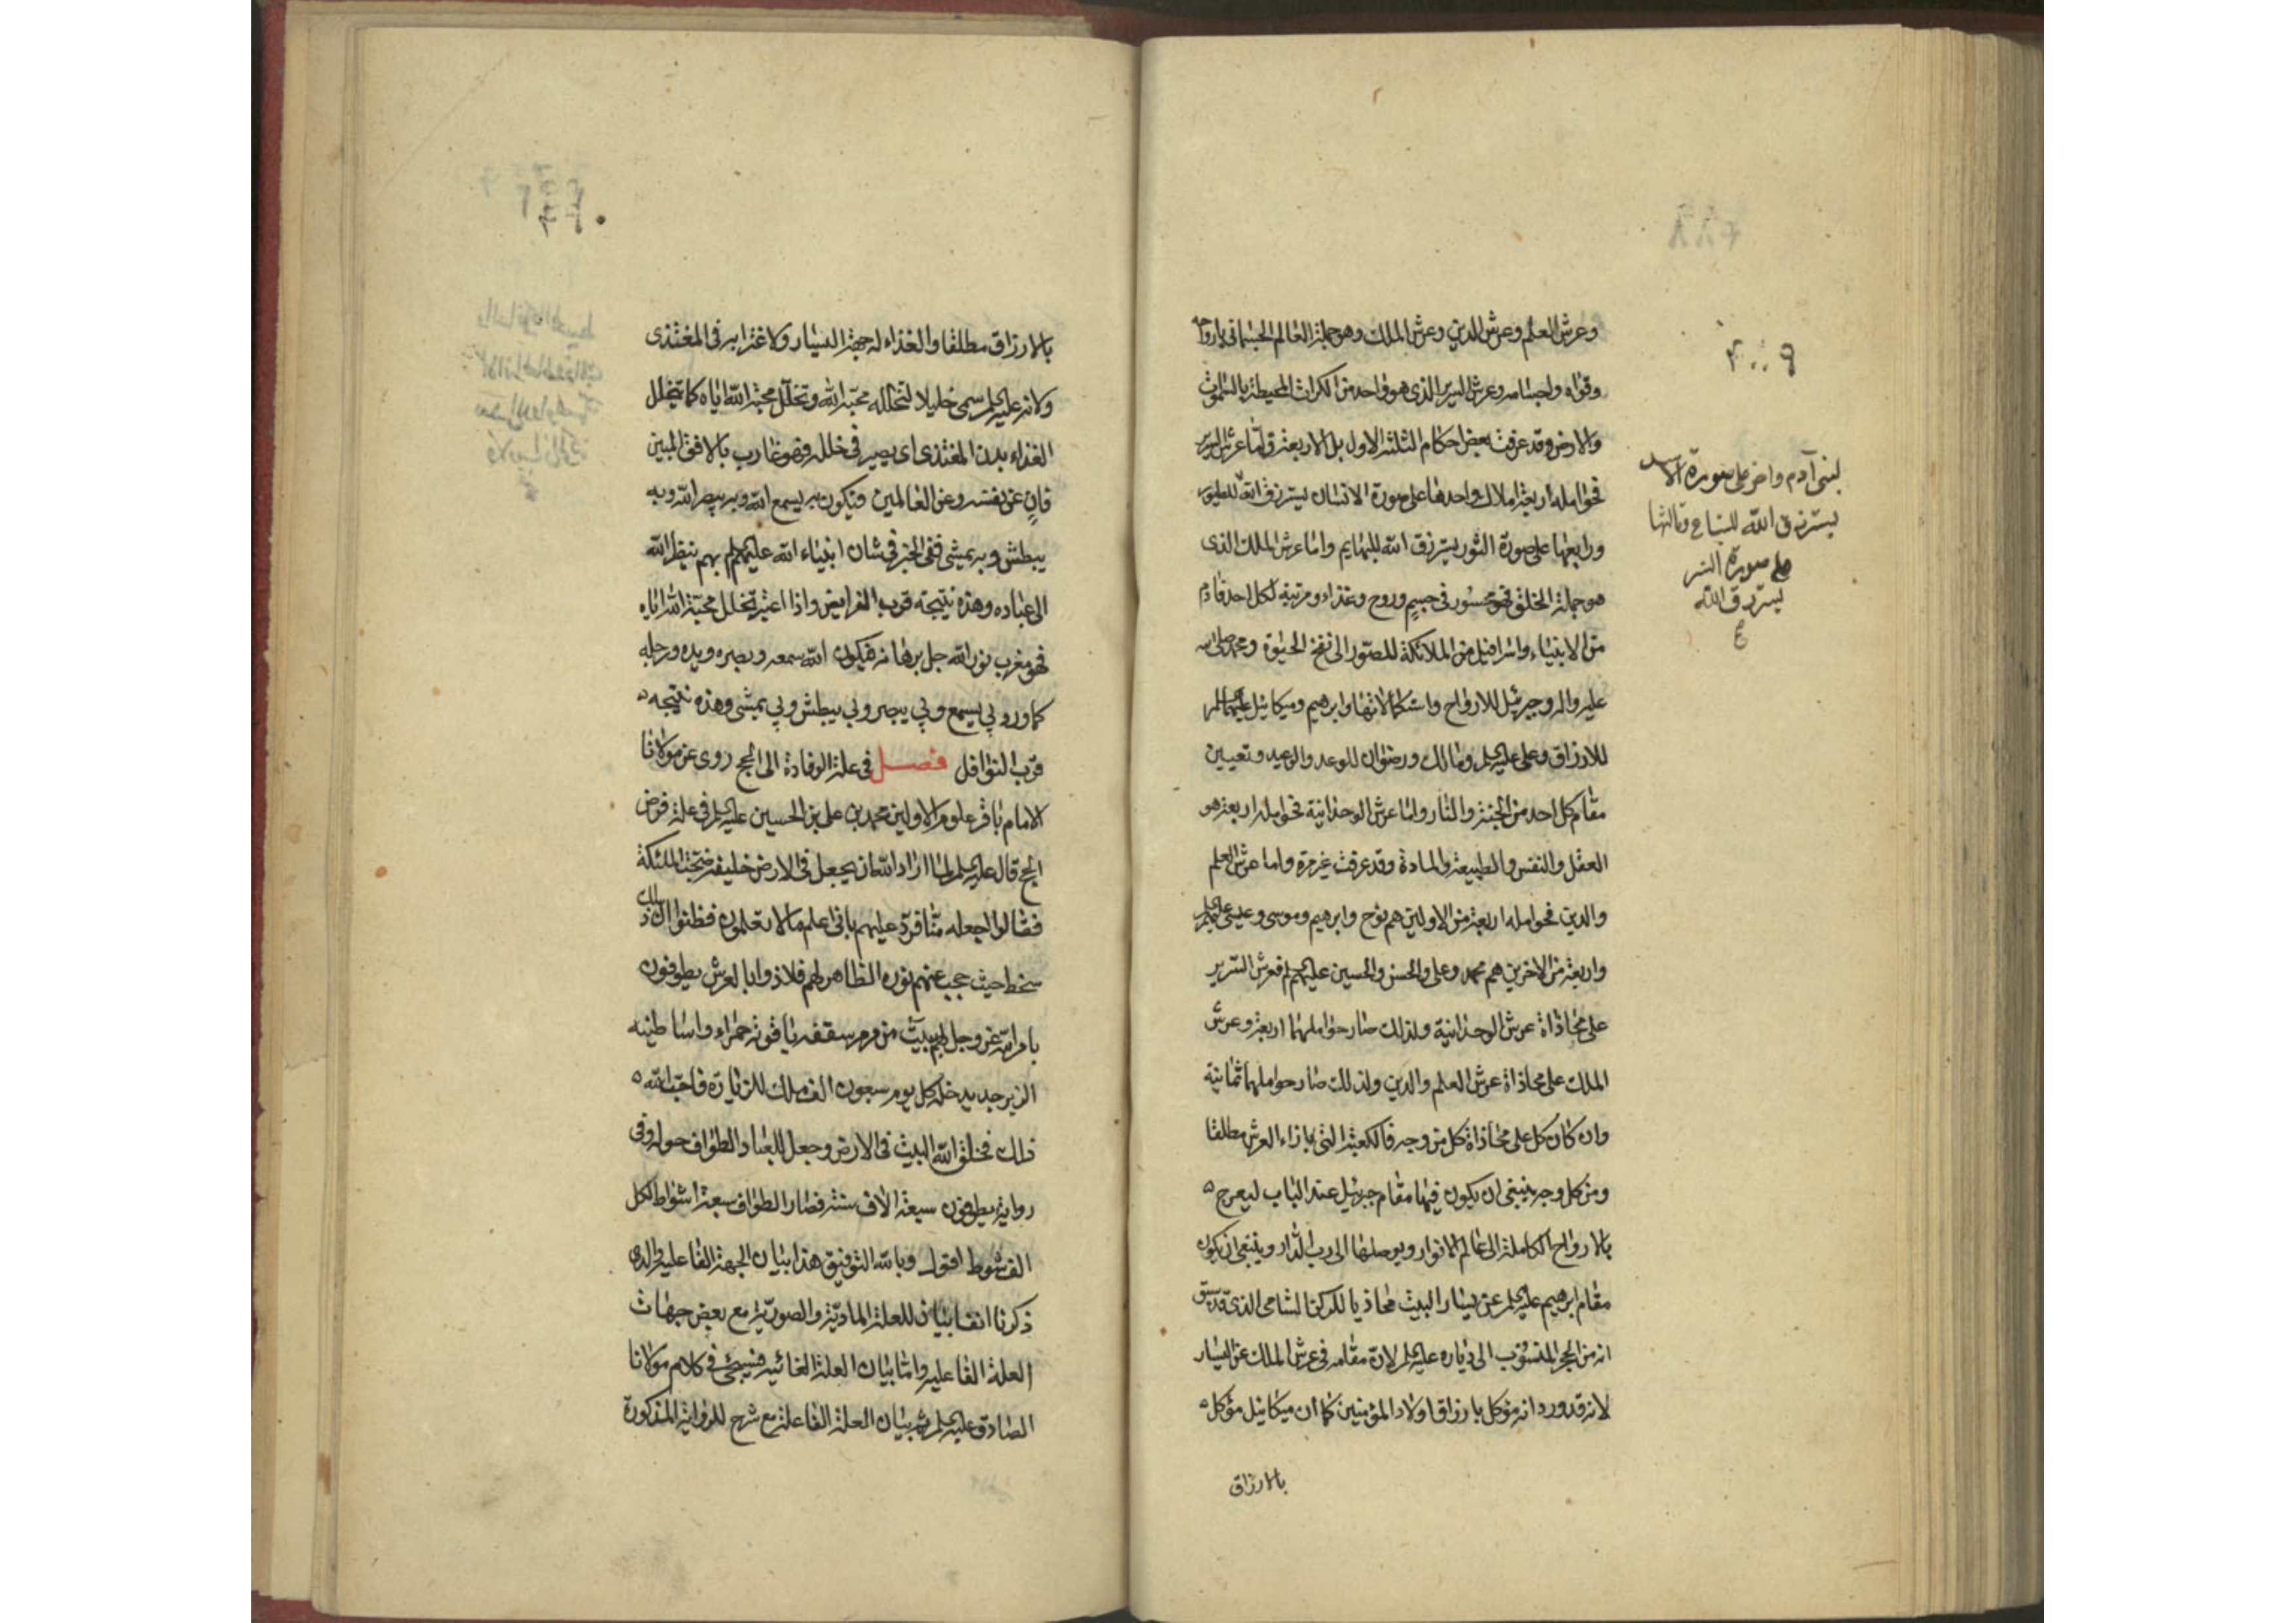 وعرش العلم وعرش الدين وعرش الملك وهو جملة العالم الجسمانى بارواحه
وقواه واجسامه وعرش السرير الذى هو واحد من الكرات المحيطة بالسموات
والارض وقد عرفت بعض احكام الثلثة الاول بل الاربعة واما عرش السرير
فحوامله اربعة املاك واحدها على صورة الانسان يسترزق الله للطيور
ورابعها على صورة الثور يسترزق الله للبهايم واما عرش الملك الذى
هو جملة الخلق فهو محسور فى جسم وروح وغذاء ومرتبة لكل احد فادم
من الانبياء واسرافيل من الملائكة للصور الى نفخ الحيوة ومحمد صلى الله
عليه واله وجبرئيل للارواح واستكمالاتها وابرهيم وميكائيل عليهما السلم
للارزاق وعلى عليه السلم ومالك ورضوان للوعد والوعيد وتعيين
مقام كل احد من الجنة والنار واما عرش الوحدانية فحوامله اربعة هو
العقل والنفس والطبيعة والمادة وقد عرفت غير مرة واما عرش العلم
والدين فحوامله اربعة من الاولين هم نوح وابرهيم وموسى وعيسى عليهم السلم
واربعة من الاخرين هم محمد وعلى والحسن والحسين عليهم السلم فعرش السرير
على محاذاة عرش الوحدانية ولذلك صار حواملهما اربعة وعرش
الملك على محاذاة عرش العلم والدين ولذلك صار حواملهما ثمانية
وان كان كل على محاذاة كل من وجه فالكعبة التى بازاء العرش مطلقا
ومن كل وجه ينبغى ان يكون فيها مقام جبرئيل عند الباب ليعرج
بالارواح الكاملة الى عالم الانوار ويوصلها الى رب الدار وينبغى ان يكون
مقام ابرهيم عليه السلم عن يسار البيت محاذيا للركن الشامى الذى قد سبق
انه من الحجر المنسوب الى دياره عليه السلم لان مقامه فى عرش الملك عن اليسار
لانه قد ورد انه موكل بارزاق اولاد المؤمنين كما ان ميكائيل موكل
بالارزاق
لبنى آدم واخر على صورة الاسد
يسترزق الله للسباع وثالثها
على صورة النسر
يسترزق الله
بالارزاق مطلقا والغذاء له جهة اليسار ولاغترابه فى المغتذى
ولانه عليه السلم سمى خليلا لتخلله محبة الله وتخلل محبة الله اياه كما يتخلل
الغذاء بدن المغتذى اى يصير فى خلله فهو غارب بالافق المبين
فان عن نفسه وعن العالمين فيكون به يسمع الله وبه يبصر الله وبه
يبطش وبه يمشى ففى الخبر فى شان انبياء الله عليهم السلم بهم ينظر الله
الى عباده وهذه نتيجة قرب الفرايض واذا اعتبر تخلل محبة الله اياه
فهو مغرب نور الله جل برهانه فيكون الله سمعه وبصره ويده ورجله
كما ورد بى يسمع وبى يبصر وبى يبطش وبى يمشى وهذه نتيجه
قرب النوافل فصل فى علة الوفادة الى الحج روى عن مولانا
الامام باقر علوم الاولين محمد بن على بن الحسين عليه السلم فى علة فرض
الحج قال عليه السلم لما اراد الله ان يجعل فى الارض خليفة ضجت الملئكة
فقالوا اجعله منا فرد عليهم بانى اعلم ما لا تعلمون فظنوا ان ذلك
سخط حيث حجب عنهم نوره الظاهر لهم فلاذوا بالعرش يطوفون
بامر الله عز وجل لهم ببيت من مرمر سقفه ياقوتة حمراء واساطينه
الزبرجد يدخله كل يوم سبعون الف ملك للزيارة فاحب الله
ذلك فخلق الله البيت فى الارض وجعل للعباد الطواف حوله وفى
رواية يطوفون سبعة الاف سنة فصار الطواف سبعة اشواط لكل
الف شوط اقول وبالله التوفيق هذا بيان الجهة الفاعلية والذى
ذكرنا انفا بيان للعلة المادية والصورية مع بعض جهات
العلة الفاعلية واما بيان العلة الغائية فسيجئ فى كلام مولانا
الصادق عليه السلم ثم بيان العلة الفاعلة مع شرح للرواية المذكورة